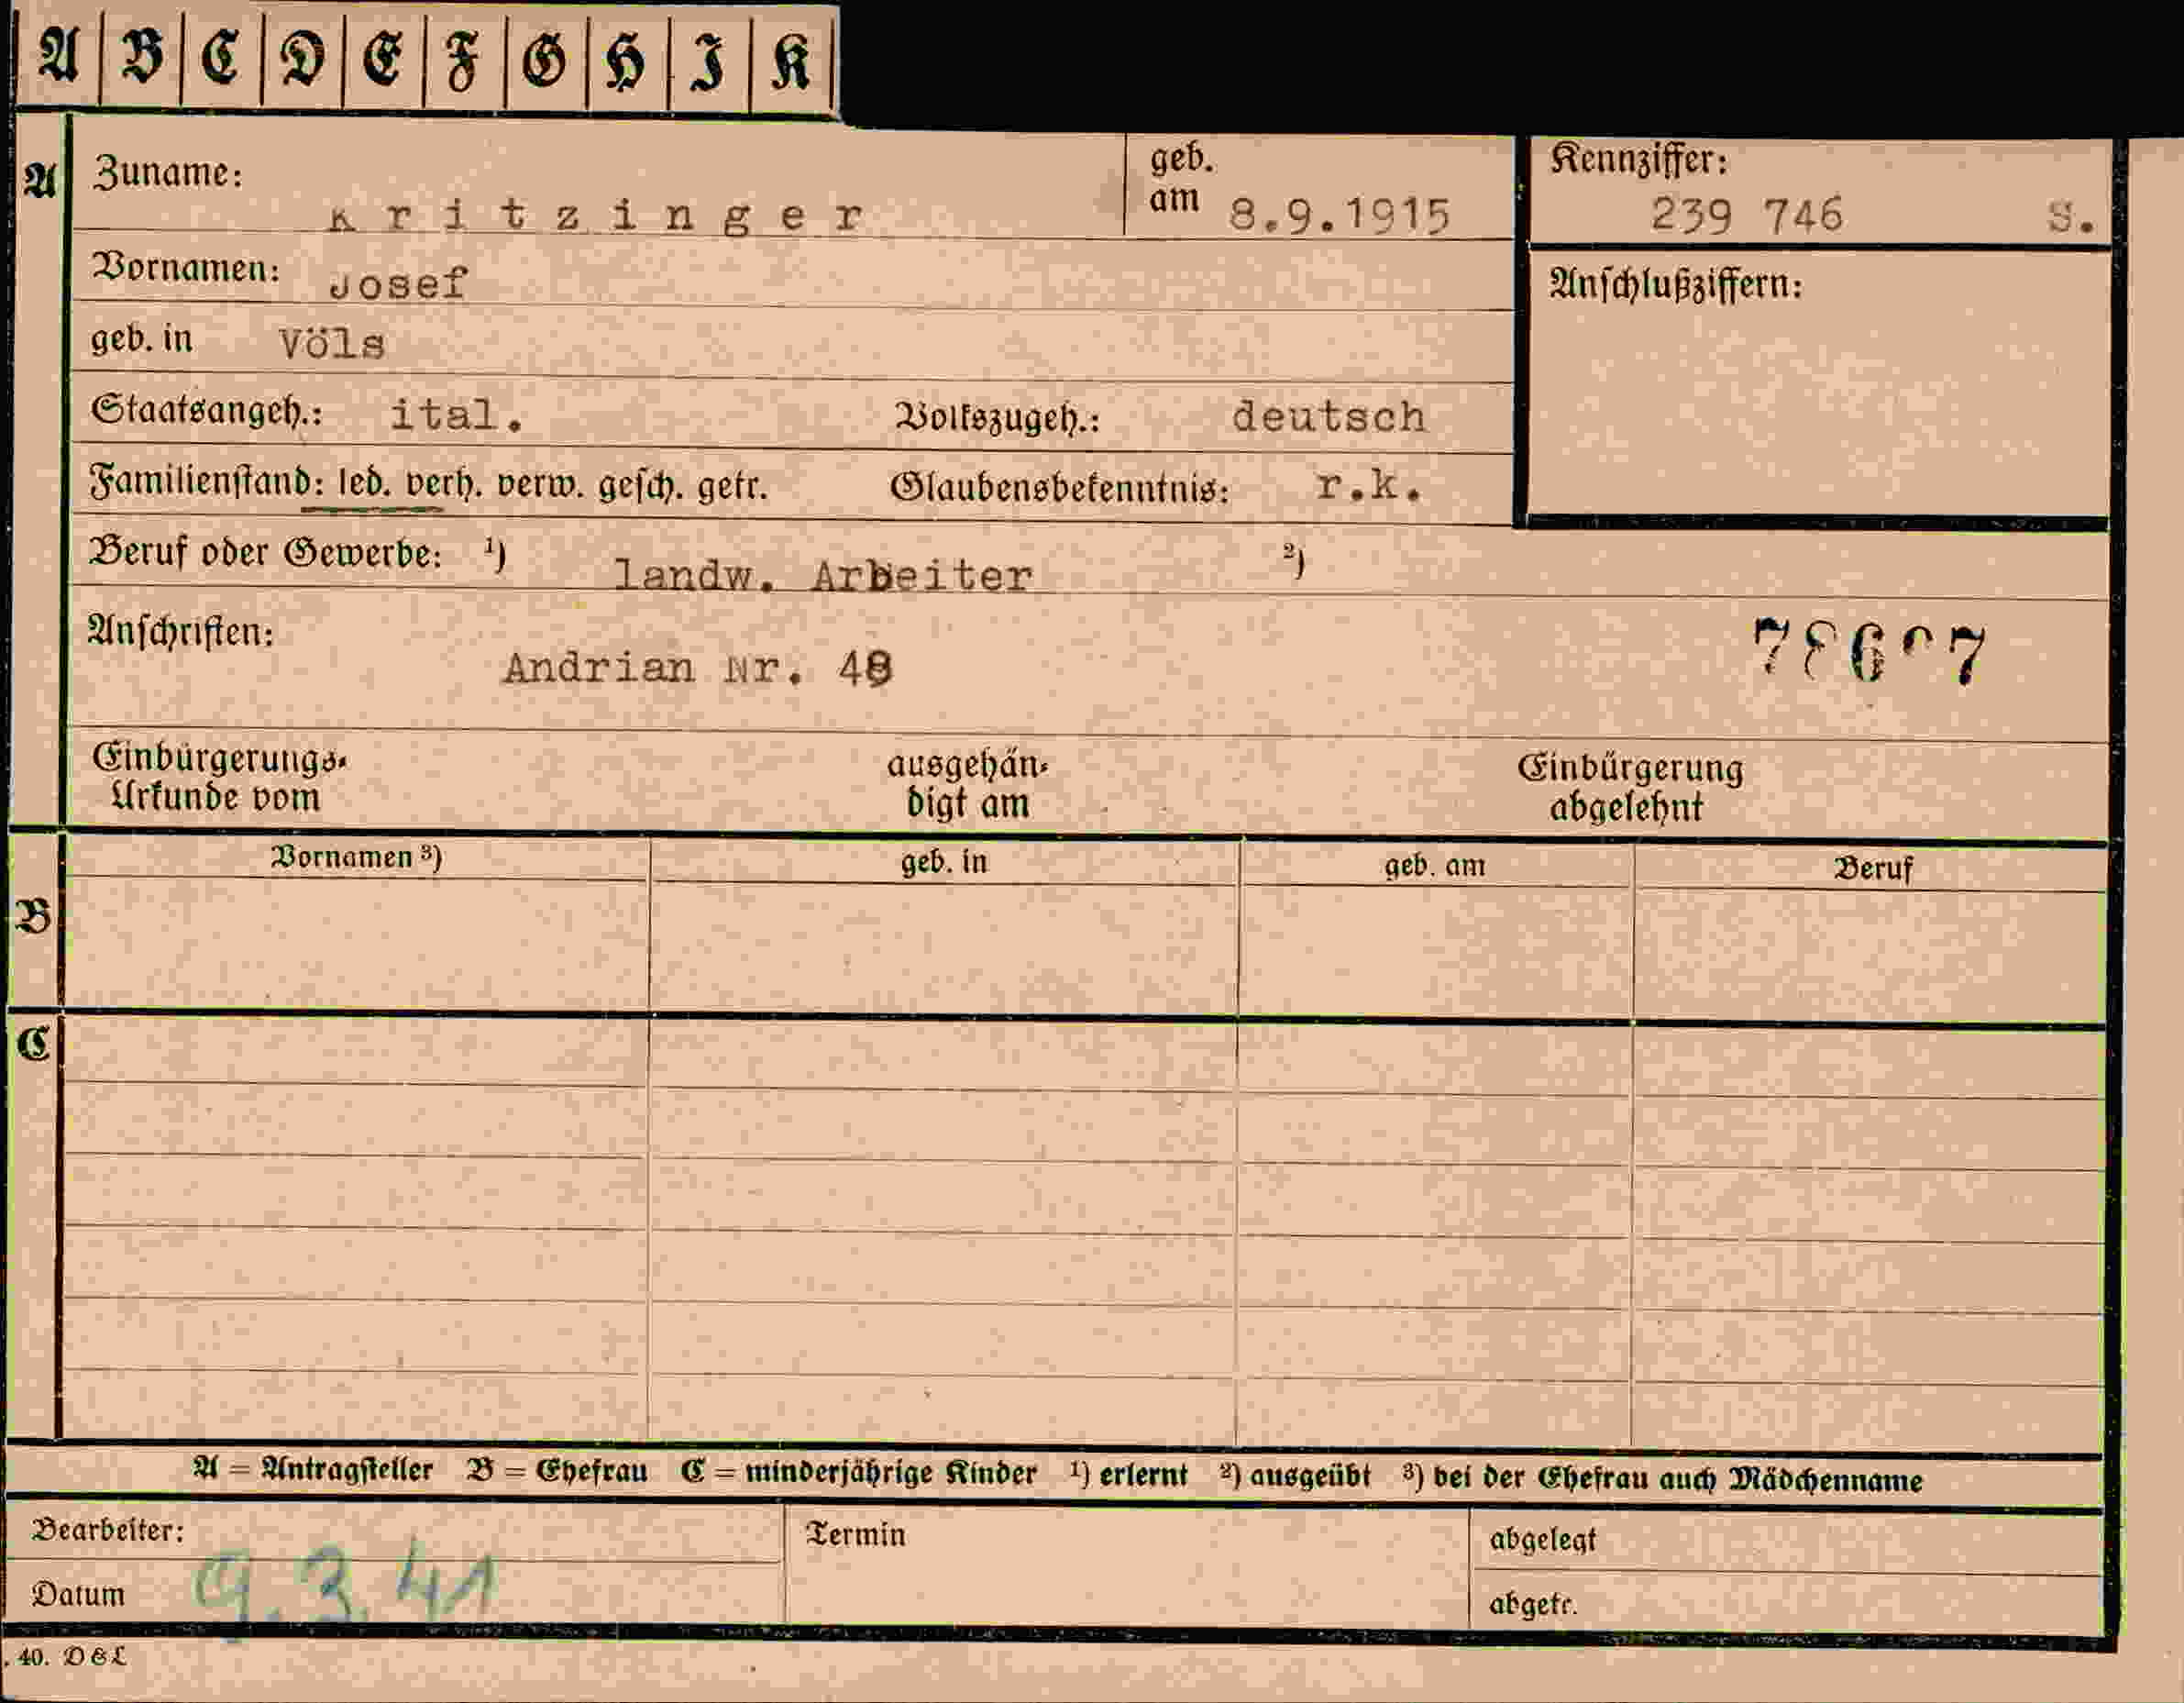 A B C D E F G H I K
A Zuname: Kritzinger geb. am 8.9.1915 Kennziffer: 239 746 S.
Vornamen: Josef Anschlußziffern:
geb. in Völs
Staatsangeh.: ital. Volkszugeh.: deutsch
Familienstand: led. verh. verw. gesch. getr. Glaubensbekenntnis: r.k.
Beruf oder Gewerbe: ¹) landw. Arbeiter ²)
Anschriften:
Andrian Nr.
Einbürgerungs- ausgehän- Einbürgerung
Urkunde vom digt am abgelehnt
Vornamen ³) geb. in geb. am Beruf
B
C
A = Antragsteller B = Ehefrau C = minderjährige Kinder ¹) erlernt ²) ausgeübt ³) bei der Ehefrau auch Mädchenname
Bearbeiter: Termin abgelegt
Datum 9.3.41 abgetr.
. 40. D & L